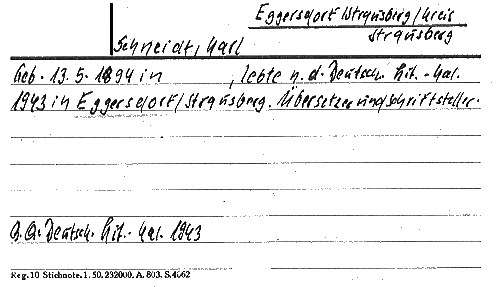 Eggersdorf/Strausberg/Kreis
Strausberg
Schneidt, Karl
Geb. 13.5.1894 in , lebte n. d. Deutsch. Lit.-Kal.
1943 in Eggersdorf/Strausberg. Übersetzer und Schriftsteller.
a.a. Deutsch. Lit.-Kal. 1943
Reg. 10 Stichnote. 1. 50. 232000. A. 803. S. 4062